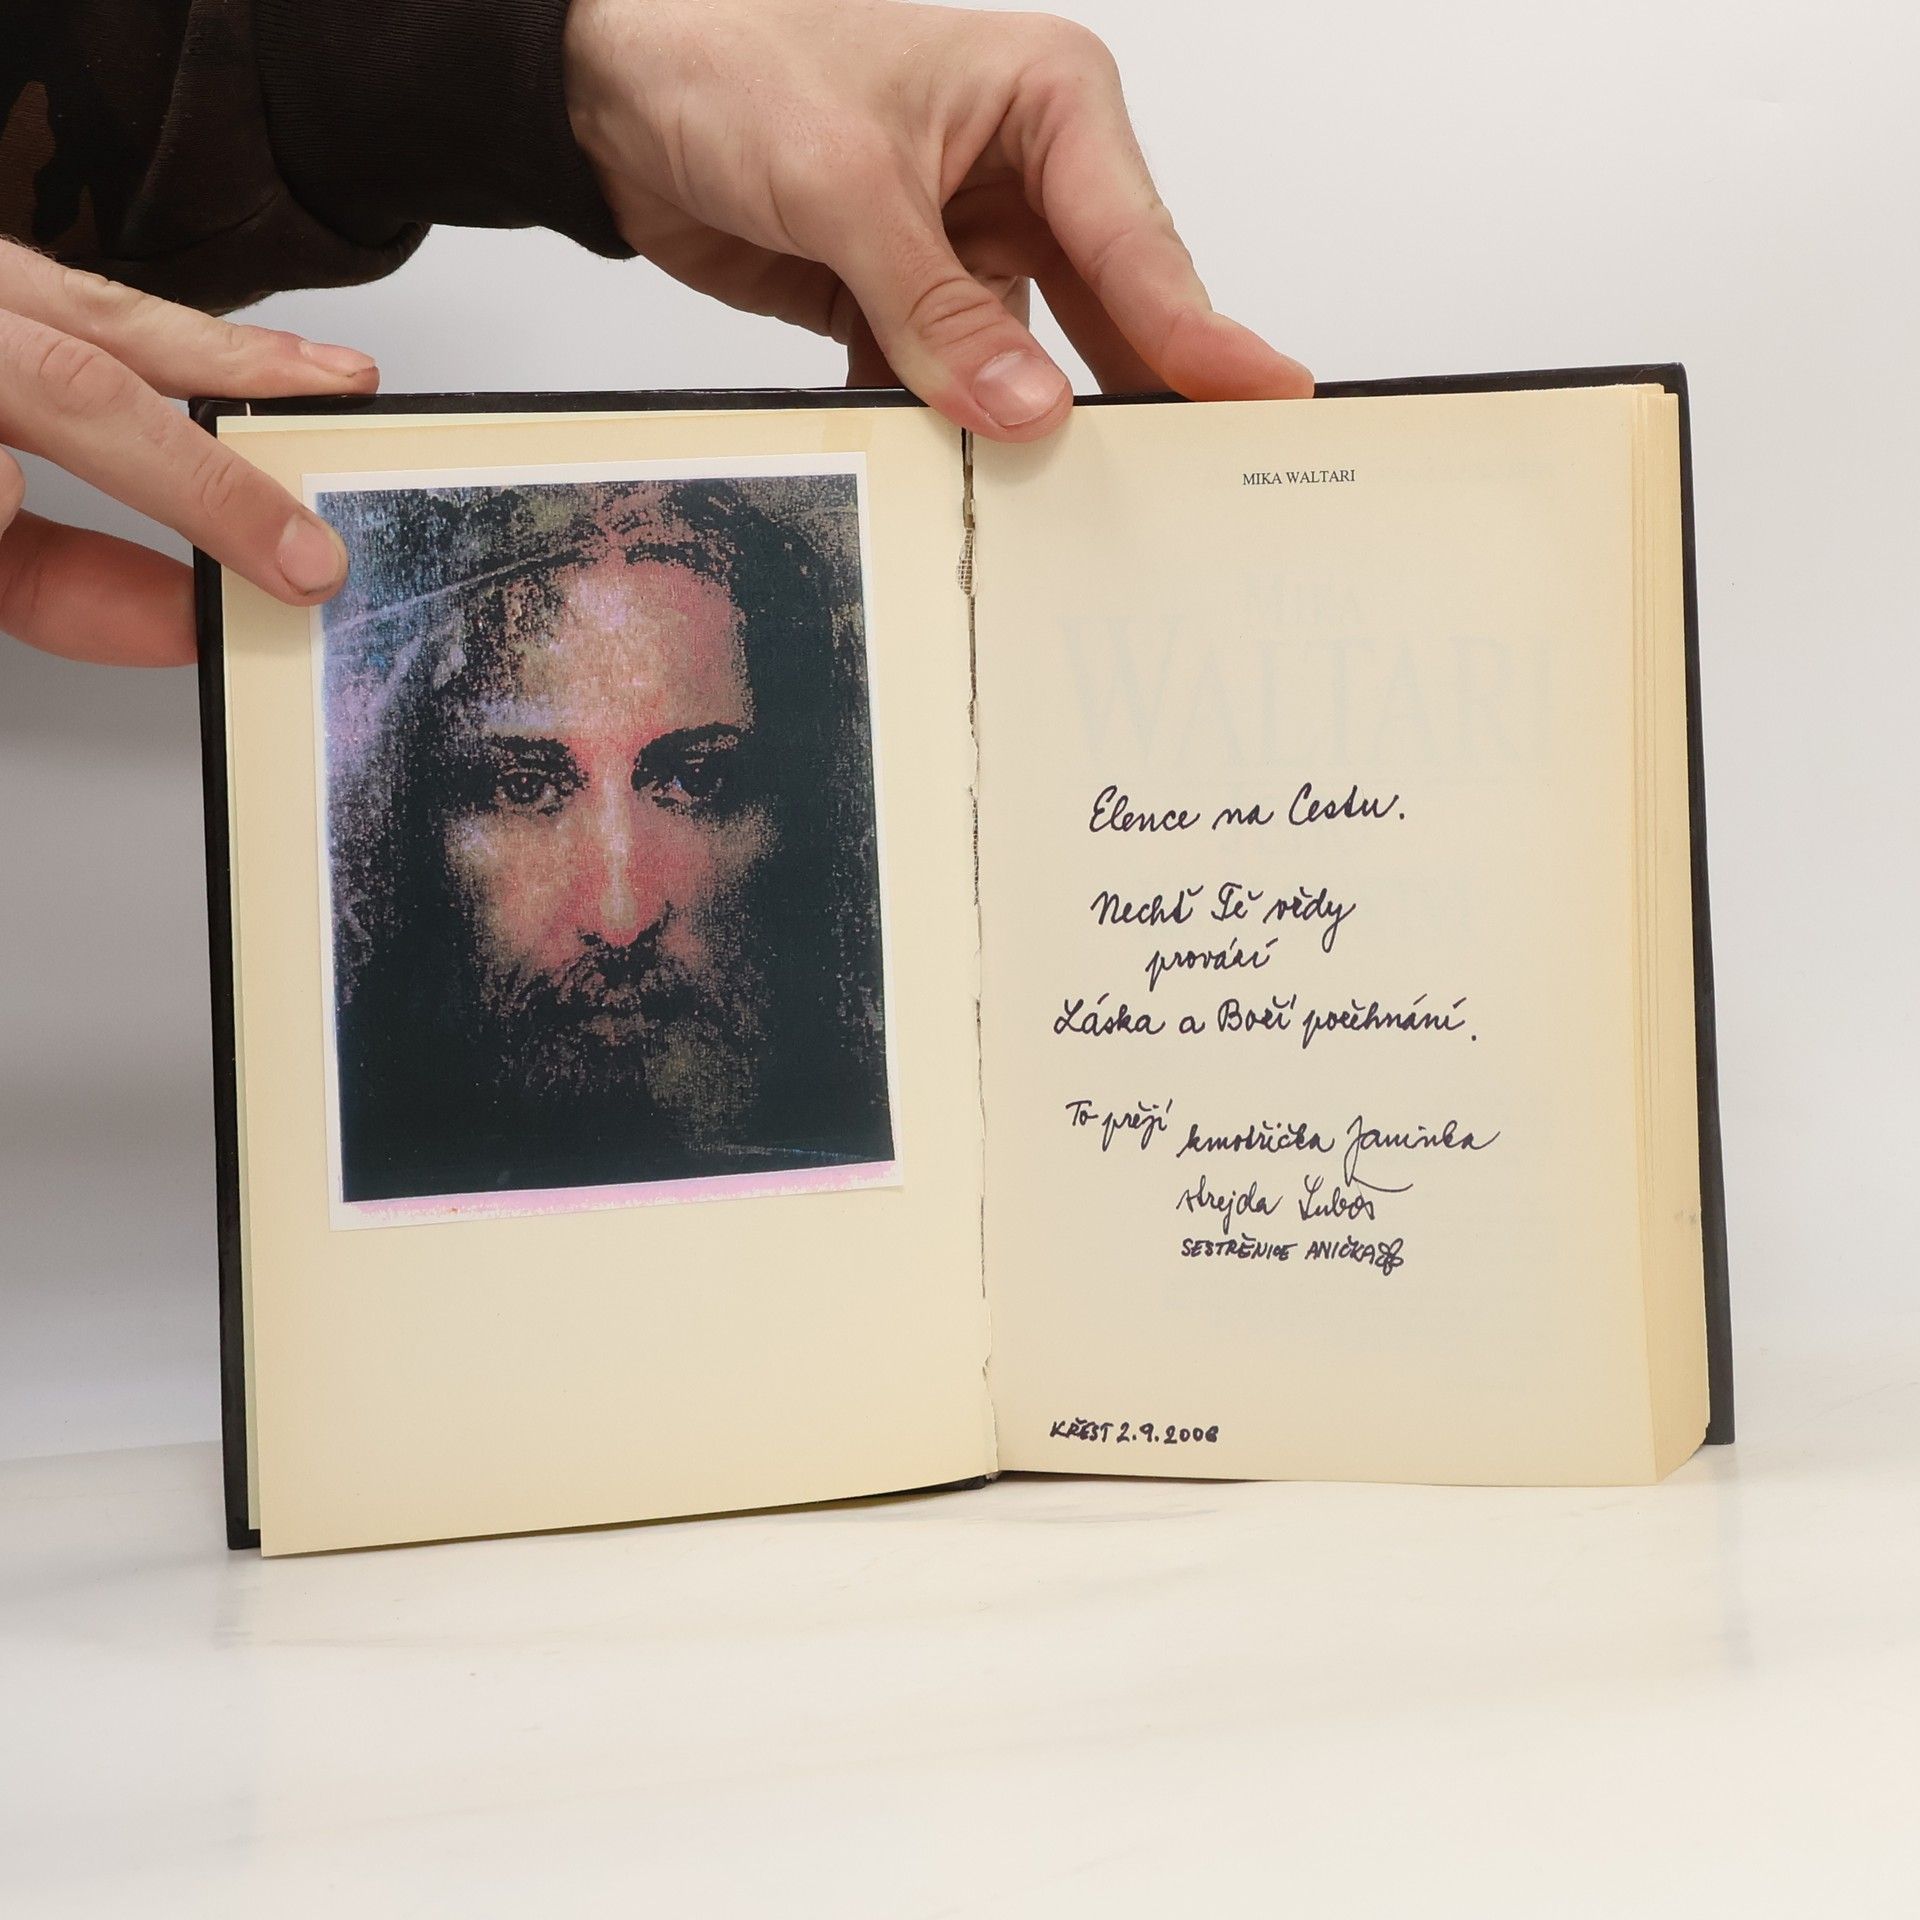 MIKA WALTARI
Elence na Cestu.
Nechť Tě vždy
provází
Láska a Boží požehnání.
To přejí
kmotřička Janinka
strejda Luboš
SESTŘENICE ANIČKA
KŘEST 2.9.2006
MIKA
WALTARI